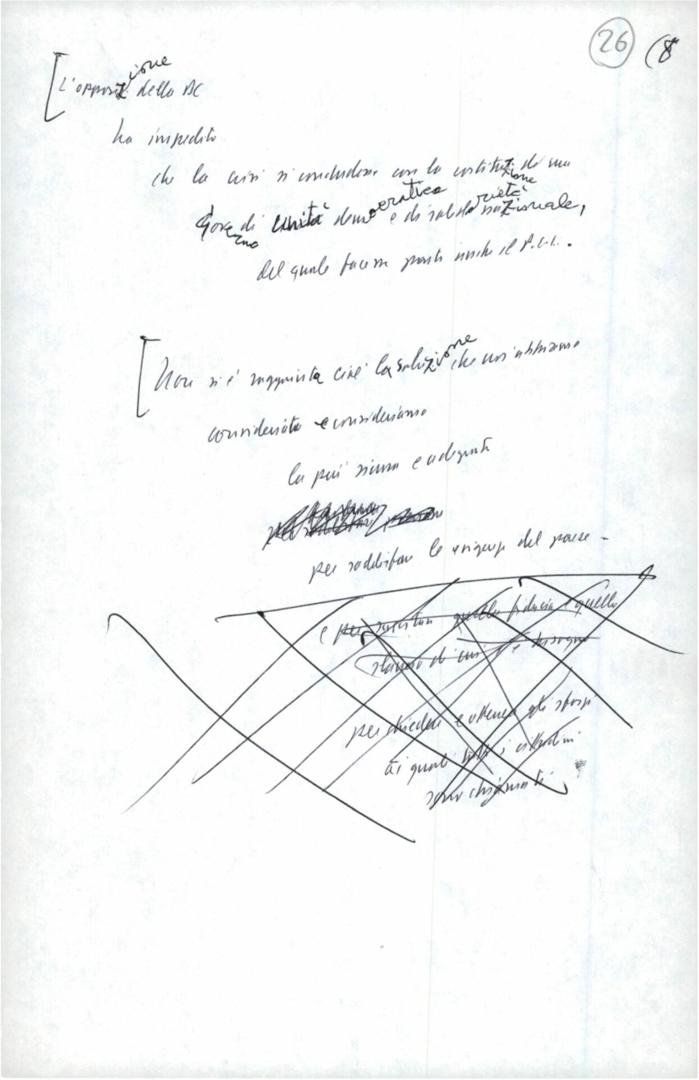 26 (8
[L'opposizione della DC
ha impedito
che la crisi si concludesse con la costituzione di un
Governo di unità democratica e di solidarietà nazionale,
del quale facesse parte anche il P.C.I..
[Non si è raggiunta cioè la soluzione che noi abbiamo
considerato e consideriamo
la più sicura e adeguata
per soddisfare le esigenze del paese -
e per suscitare quella fiducia e quello
slancio di cui c'è bisogno
per chiedere e ottenere gli sforzi
ai quali tutti i cittadini
sono chiamati